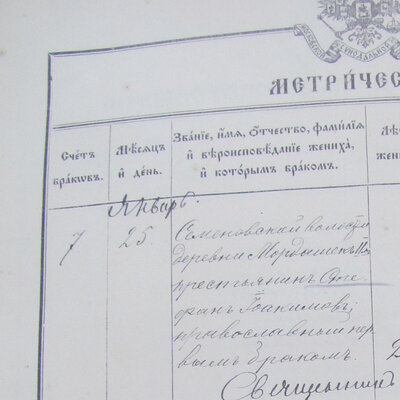 МЕТРИ́ЧЕС
Сче́тъ бра́ковъ.
Мѣ́сяцъ и҆ де́нь.
Зва́нїе, и҆́мя, ѻ҆́тчество, фами́лїя и҆ вѣроисповѣ́данїе жениха̀, и҆ кото́рымъ бра́комъ.
Январь.
7
25.
Семеновской волости
деревни
крестьянинъ Сте-
фанъ Іоакимовъ;
православный пер-
вымъ бракомъ.
Священникъ